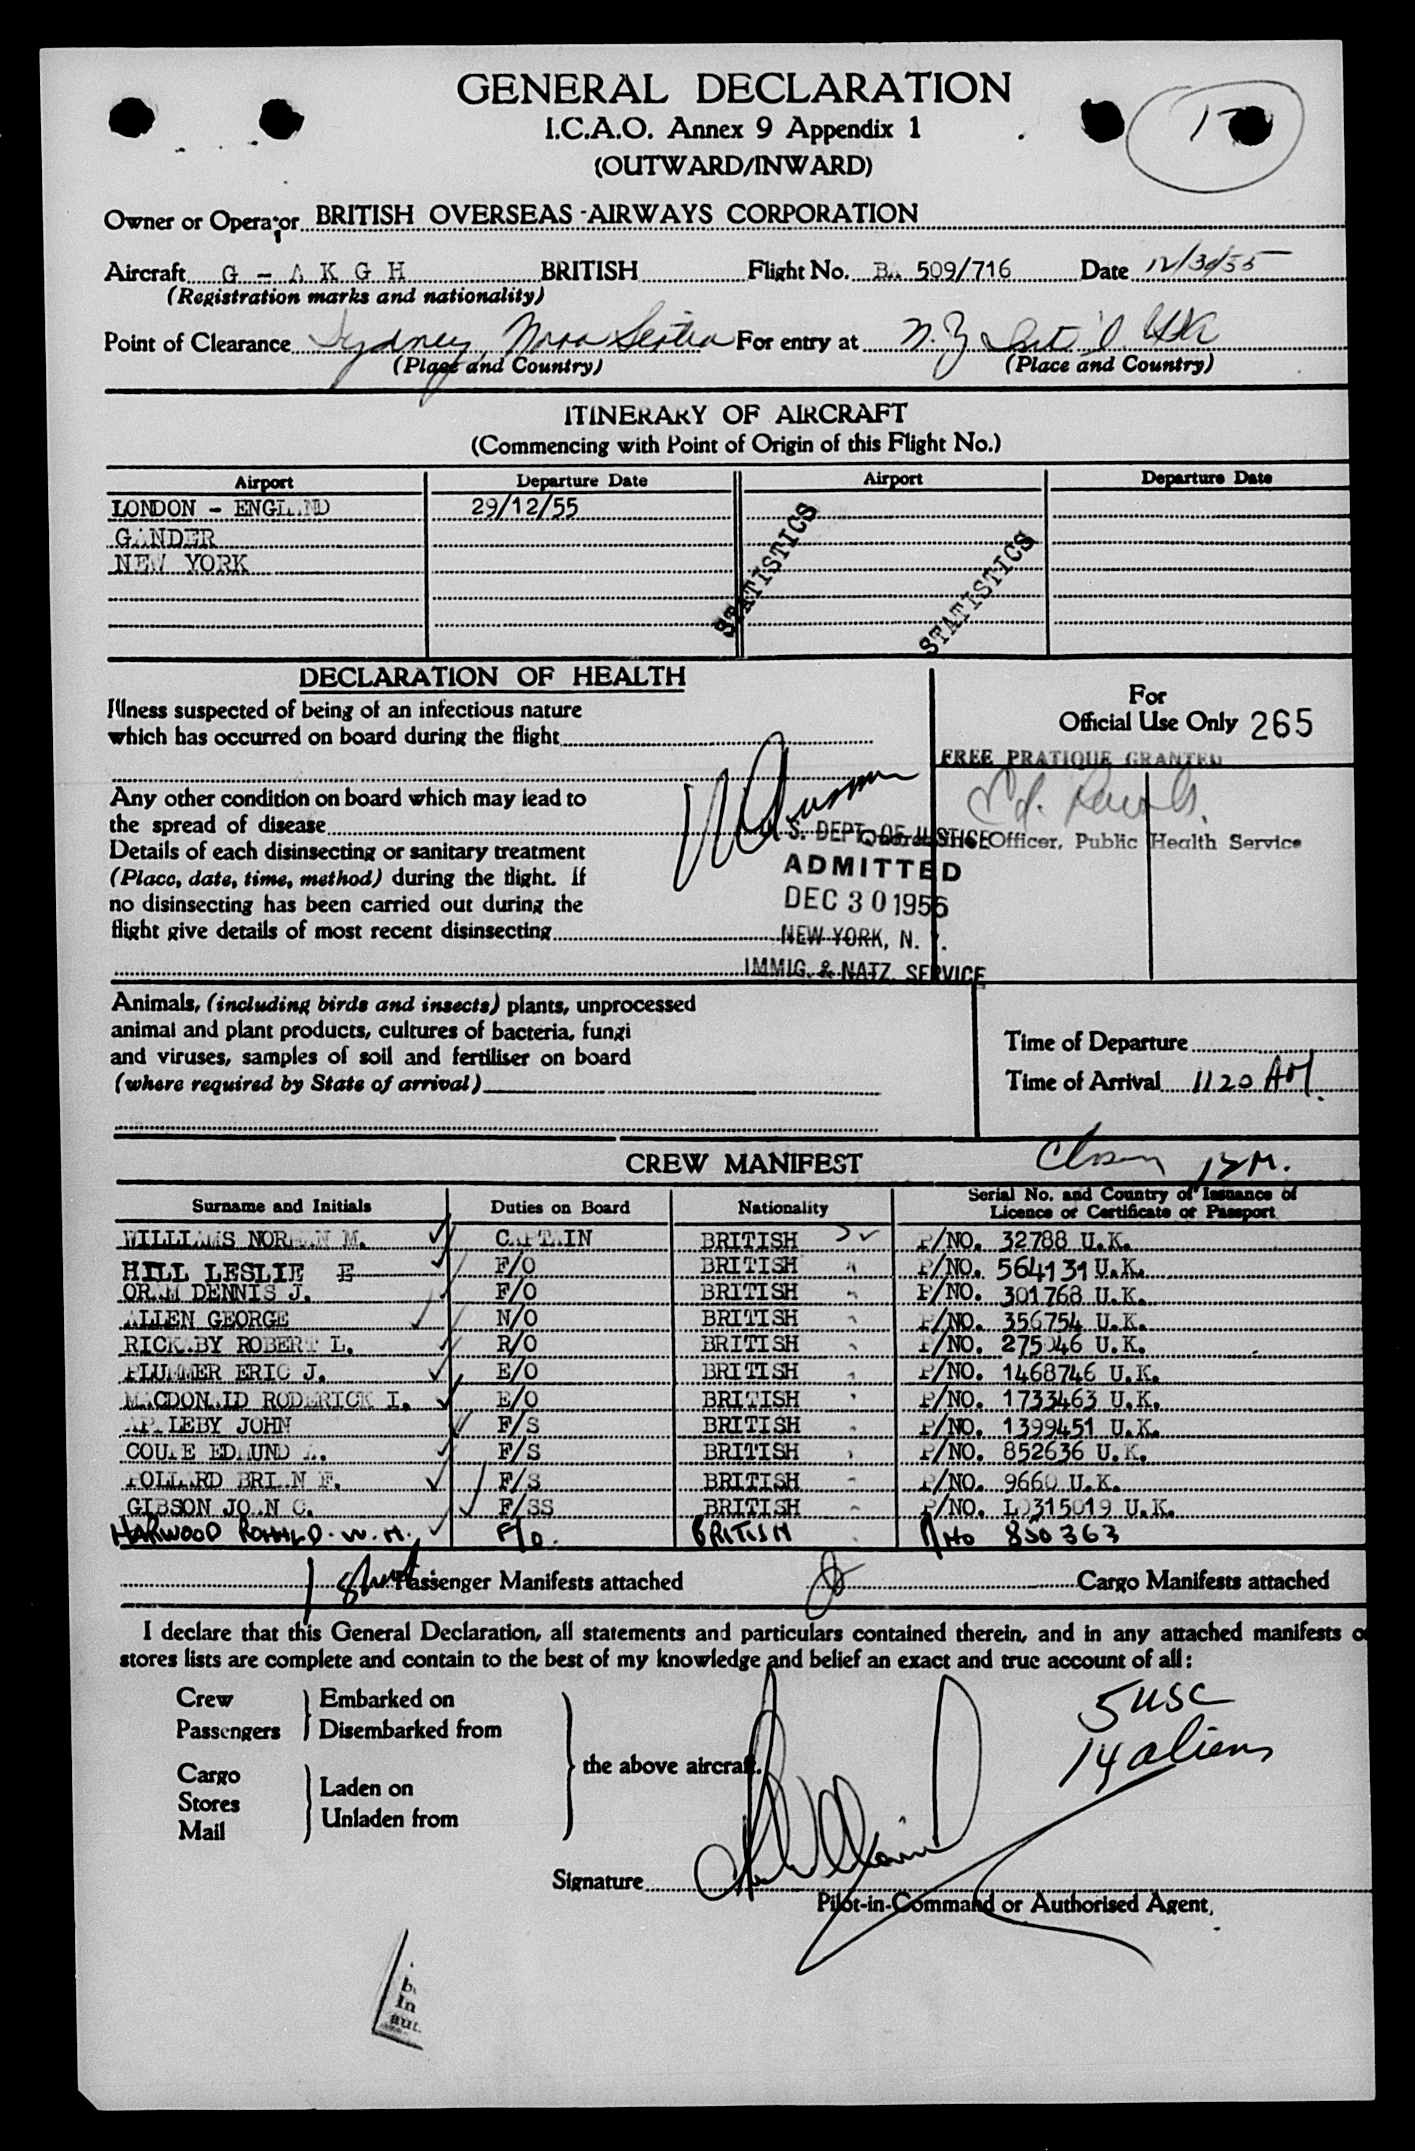 GENERAL DECLARATION
I.C.A.O. Annex 9 Appendix 1
(OUTWARD/INWARD)
Owner or Operator BRITISH OVERSEAS AIRWAYS CORPORATION
Aircraft G - A K G H BRITISH Flight No. BA 509/716 Date 12/30/55
(Registration marks and nationality)
Point of Clearance Sydney, Nova Scotia For entry at N.Y. Int'l
(Place and Country) (Place and Country)
ITINERARY OF AIRCRAFT
(Commencing with Point of Origin of this Flight No.)
Airport Departure Date Airport Departure Date
LONDON - ENGLAND 29/12/55
GANDER
NEW YORK
STATISTICS STATISTICS
DECLARATION OF HEALTH
Illness suspected of being of an infectious nature
which has occurred on board during the flight
For
Official Use Only 265
FREE PRATIQUE GRANTED
Any other condition on board which may lead to
the spread of disease
Quarantine Officer, Public Health Service
Details of each disinsecting or sanitary treatment
(Place, date, time, method) during the flight. If
no disinsecting has been carried out during the
flight give details of most recent disinsecting
U.S. DEPT. OF JUSTICE
ADMITTED
DEC 30 1955
NEW YORK, N. Y.
IMMIG. & NATZ. SERVICE
Animals, (including birds and insects) plants, unprocessed
animal and plant products, cultures of bacteria, fungi
and viruses, samples of soil and fertiliser on board
(where required by State of arrival)
Time of Departure
Time of Arrival 1120 AM
CREW MANIFEST
Surname and Initials Duties on Board Nationality Serial No. and Country of Issuance of Licence or Certificate or Passport
WILLIAMS NORMAN M. CAPTAIN BRITISH P/NO. 32788 U.K.
HILL LESLIE E F/O BRITISH P/NO. 564131 U.K.
ORAM DENNIS J. F/O BRITISH P/NO. 301768 U.K.
ALLEN GEORGE N/O BRITISH P/NO. 356754 U.K.
RICKABY ROBERT L. R/O BRITISH P/NO. U.K.
PLUMMER ERIC J. E/O BRITISH P/NO. 1468746 U.K.
MACDONALD RODERICK I. E/O BRITISH P/NO. 1733463 U.K.
APPLEBY JOHN F/S BRITISH P/NO. 1399451 U.K.
EDMUND F/S BRITISH P/NO. 852636 U.K.
POLLARD BRIAN F. F/S BRITISH P/NO. 9660 U.K.
GIBSON JOAN C. F/SS BRITISH P/NO. L0315019 U.K.
HARWOOD RONALD. W. H. F/O. BRITISH P/No 850363
1 sheet Passenger Manifests attached Cargo Manifests attached
I declare that this General Declaration, all statements and particulars contained therein, and in any attached manifests o
stores lists are complete and contain to the best of my knowledge and belief an exact and true account of all:
Crew Embarked on
Passengers Disembarked from
the above aircraft.
Cargo Laden on
Stores
Mail Unladen from
5 USC
14 aliens
Signature
Pilot-in-Command or Authorised Agent.